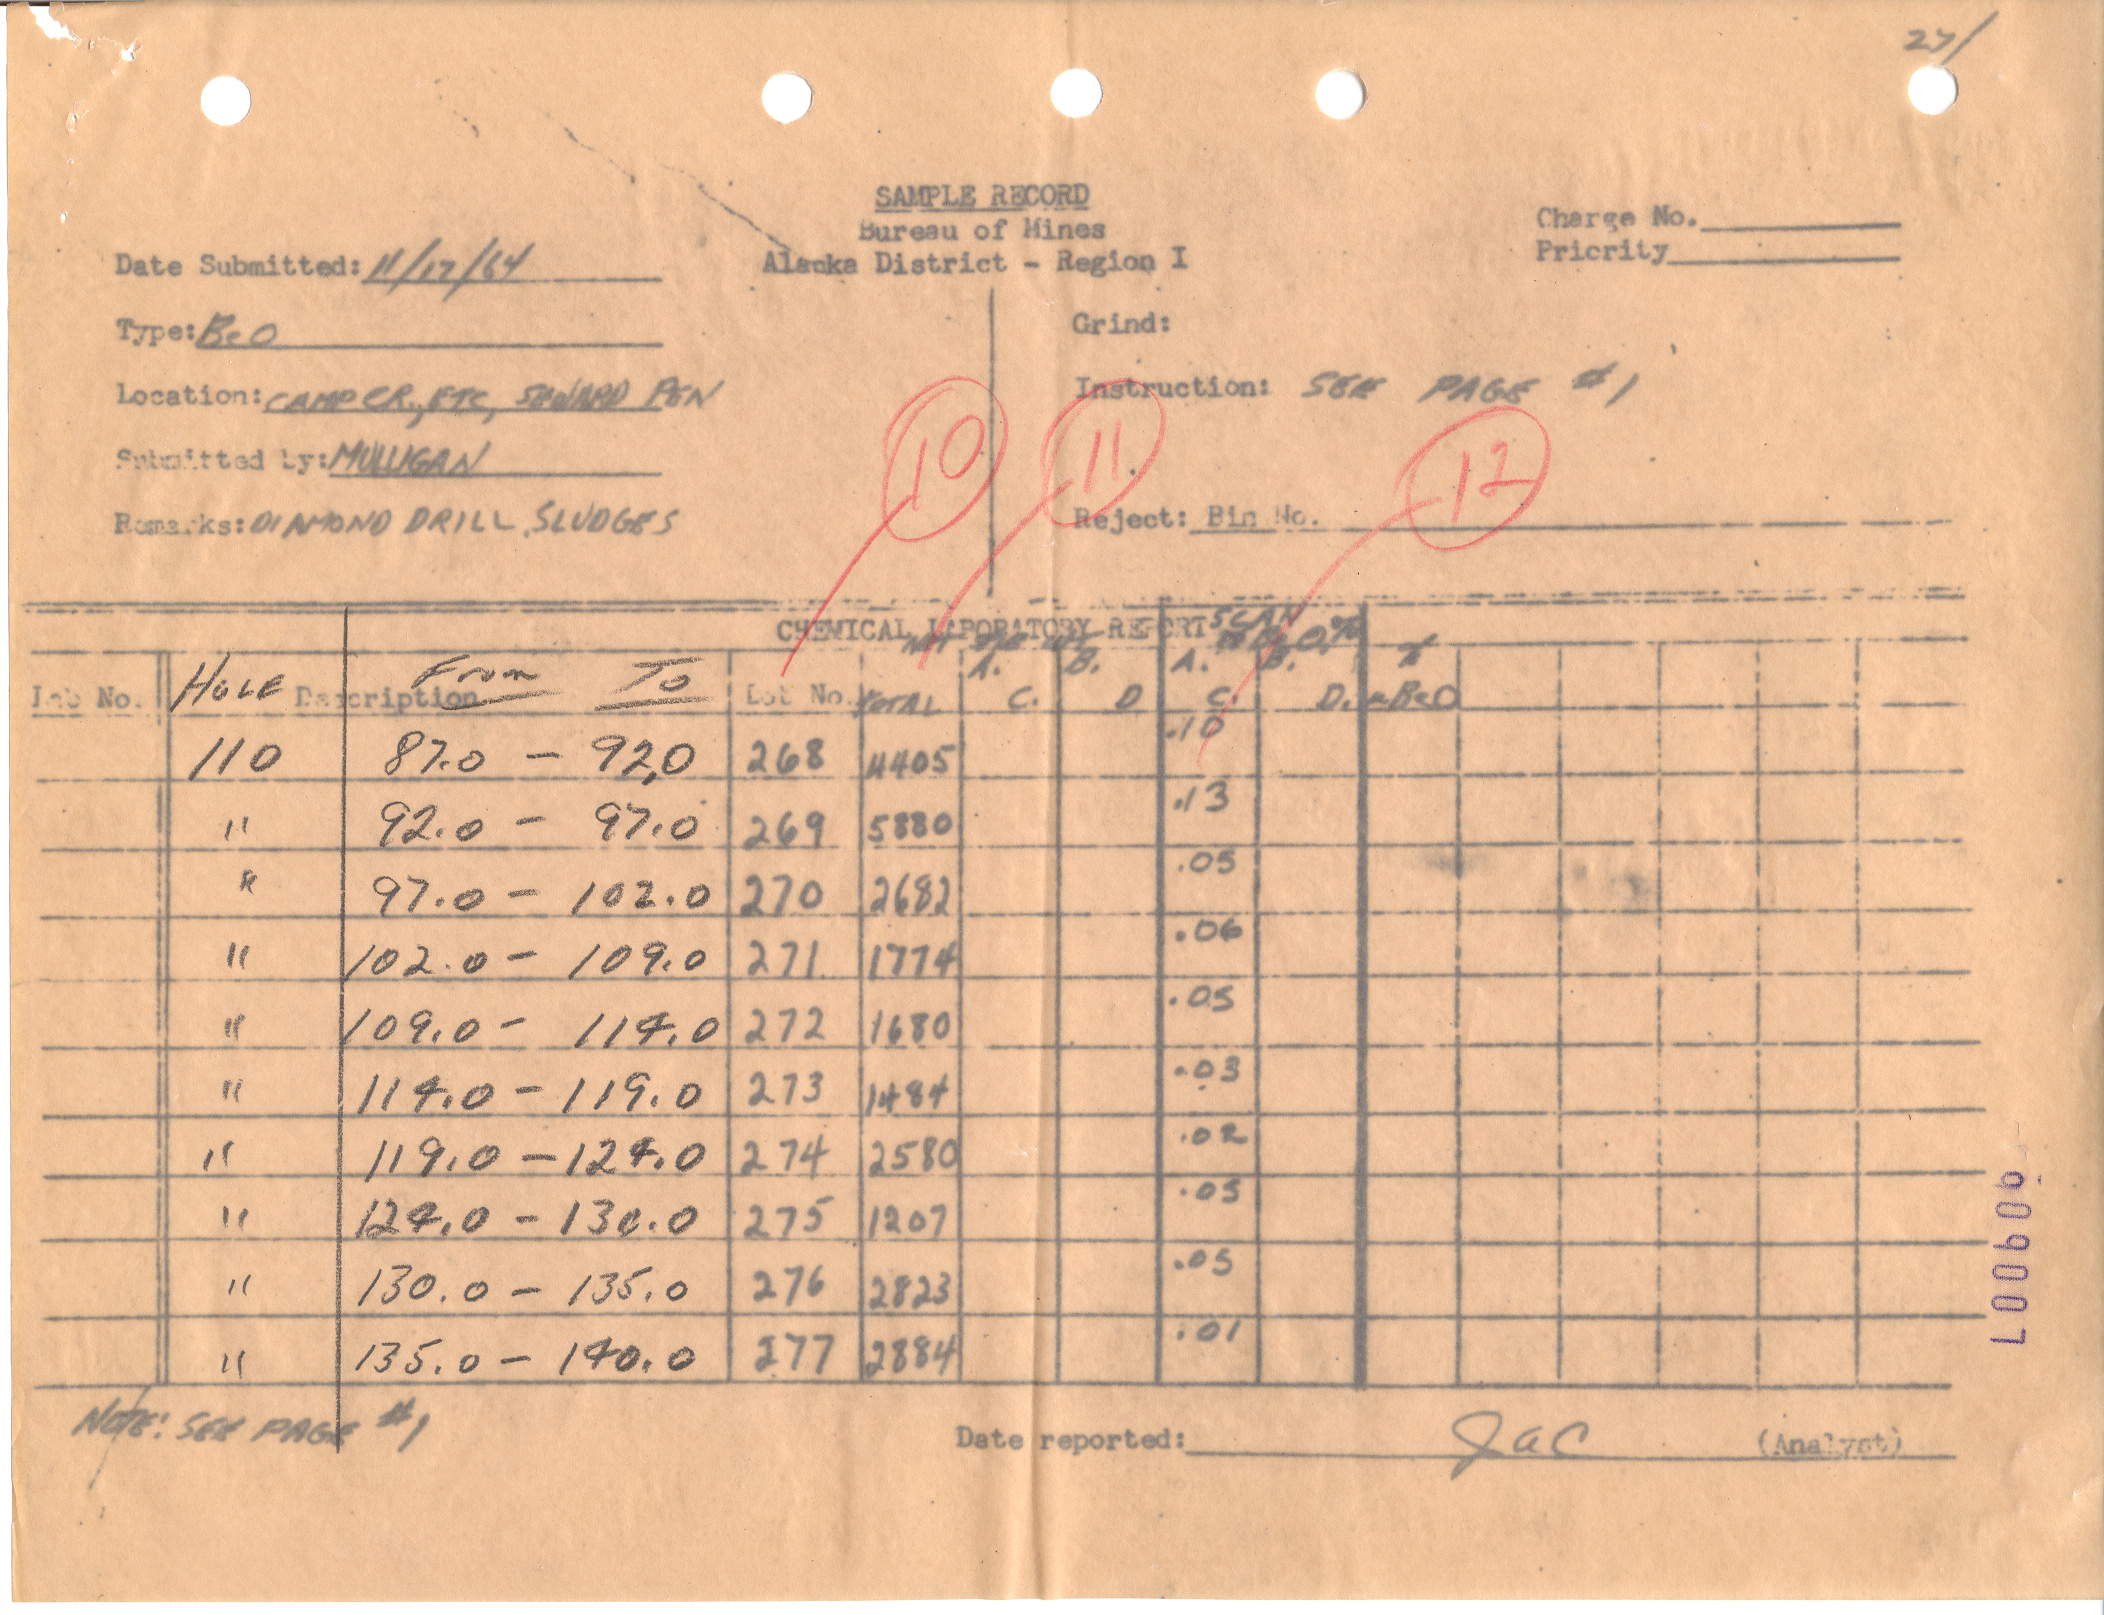 27/
SAMPLE RECORD
Bureau of Mines
Alaska District - Region I
Charge No.
Priority
Date Submitted: 11/17/64
Type: BeO
Location: CAMP CR., ETC, SEWARD PEN
Submitted by: MULLIGAN
Remarks: DIAMOND DRILL SLUDGES
Grind:
Instruction: SEE PAGE #1
Reject: Bin No.
10 11 12
CHEMICAL LABORATORY REPORT SCAN
A. B. A. B. %
Lab No. HOLE Description From To Lot No. TOTAL C. D C. D. BeO
110 87.0 - 92.0 268 4405 .10
" 92.0 - 97.0 269 5880 .13
" 97.0 - 102.0 270 2682 .05
" 102.0 - 109.0 271 1774 .06
" 109.0 - 114.0 272 1680 .05
" 114.0 - 119.0 273 1484 .03
" 119.0 - 124.0 274 2580 .02
" 124.0 - 130.0 275 1207 .05
" 130.0 - 135.0 276 2823 .05
" 135.0 - 140.0 277 2884 .01
NOTE: SEE PAGE #1
Date reported: JAC (Analyst)